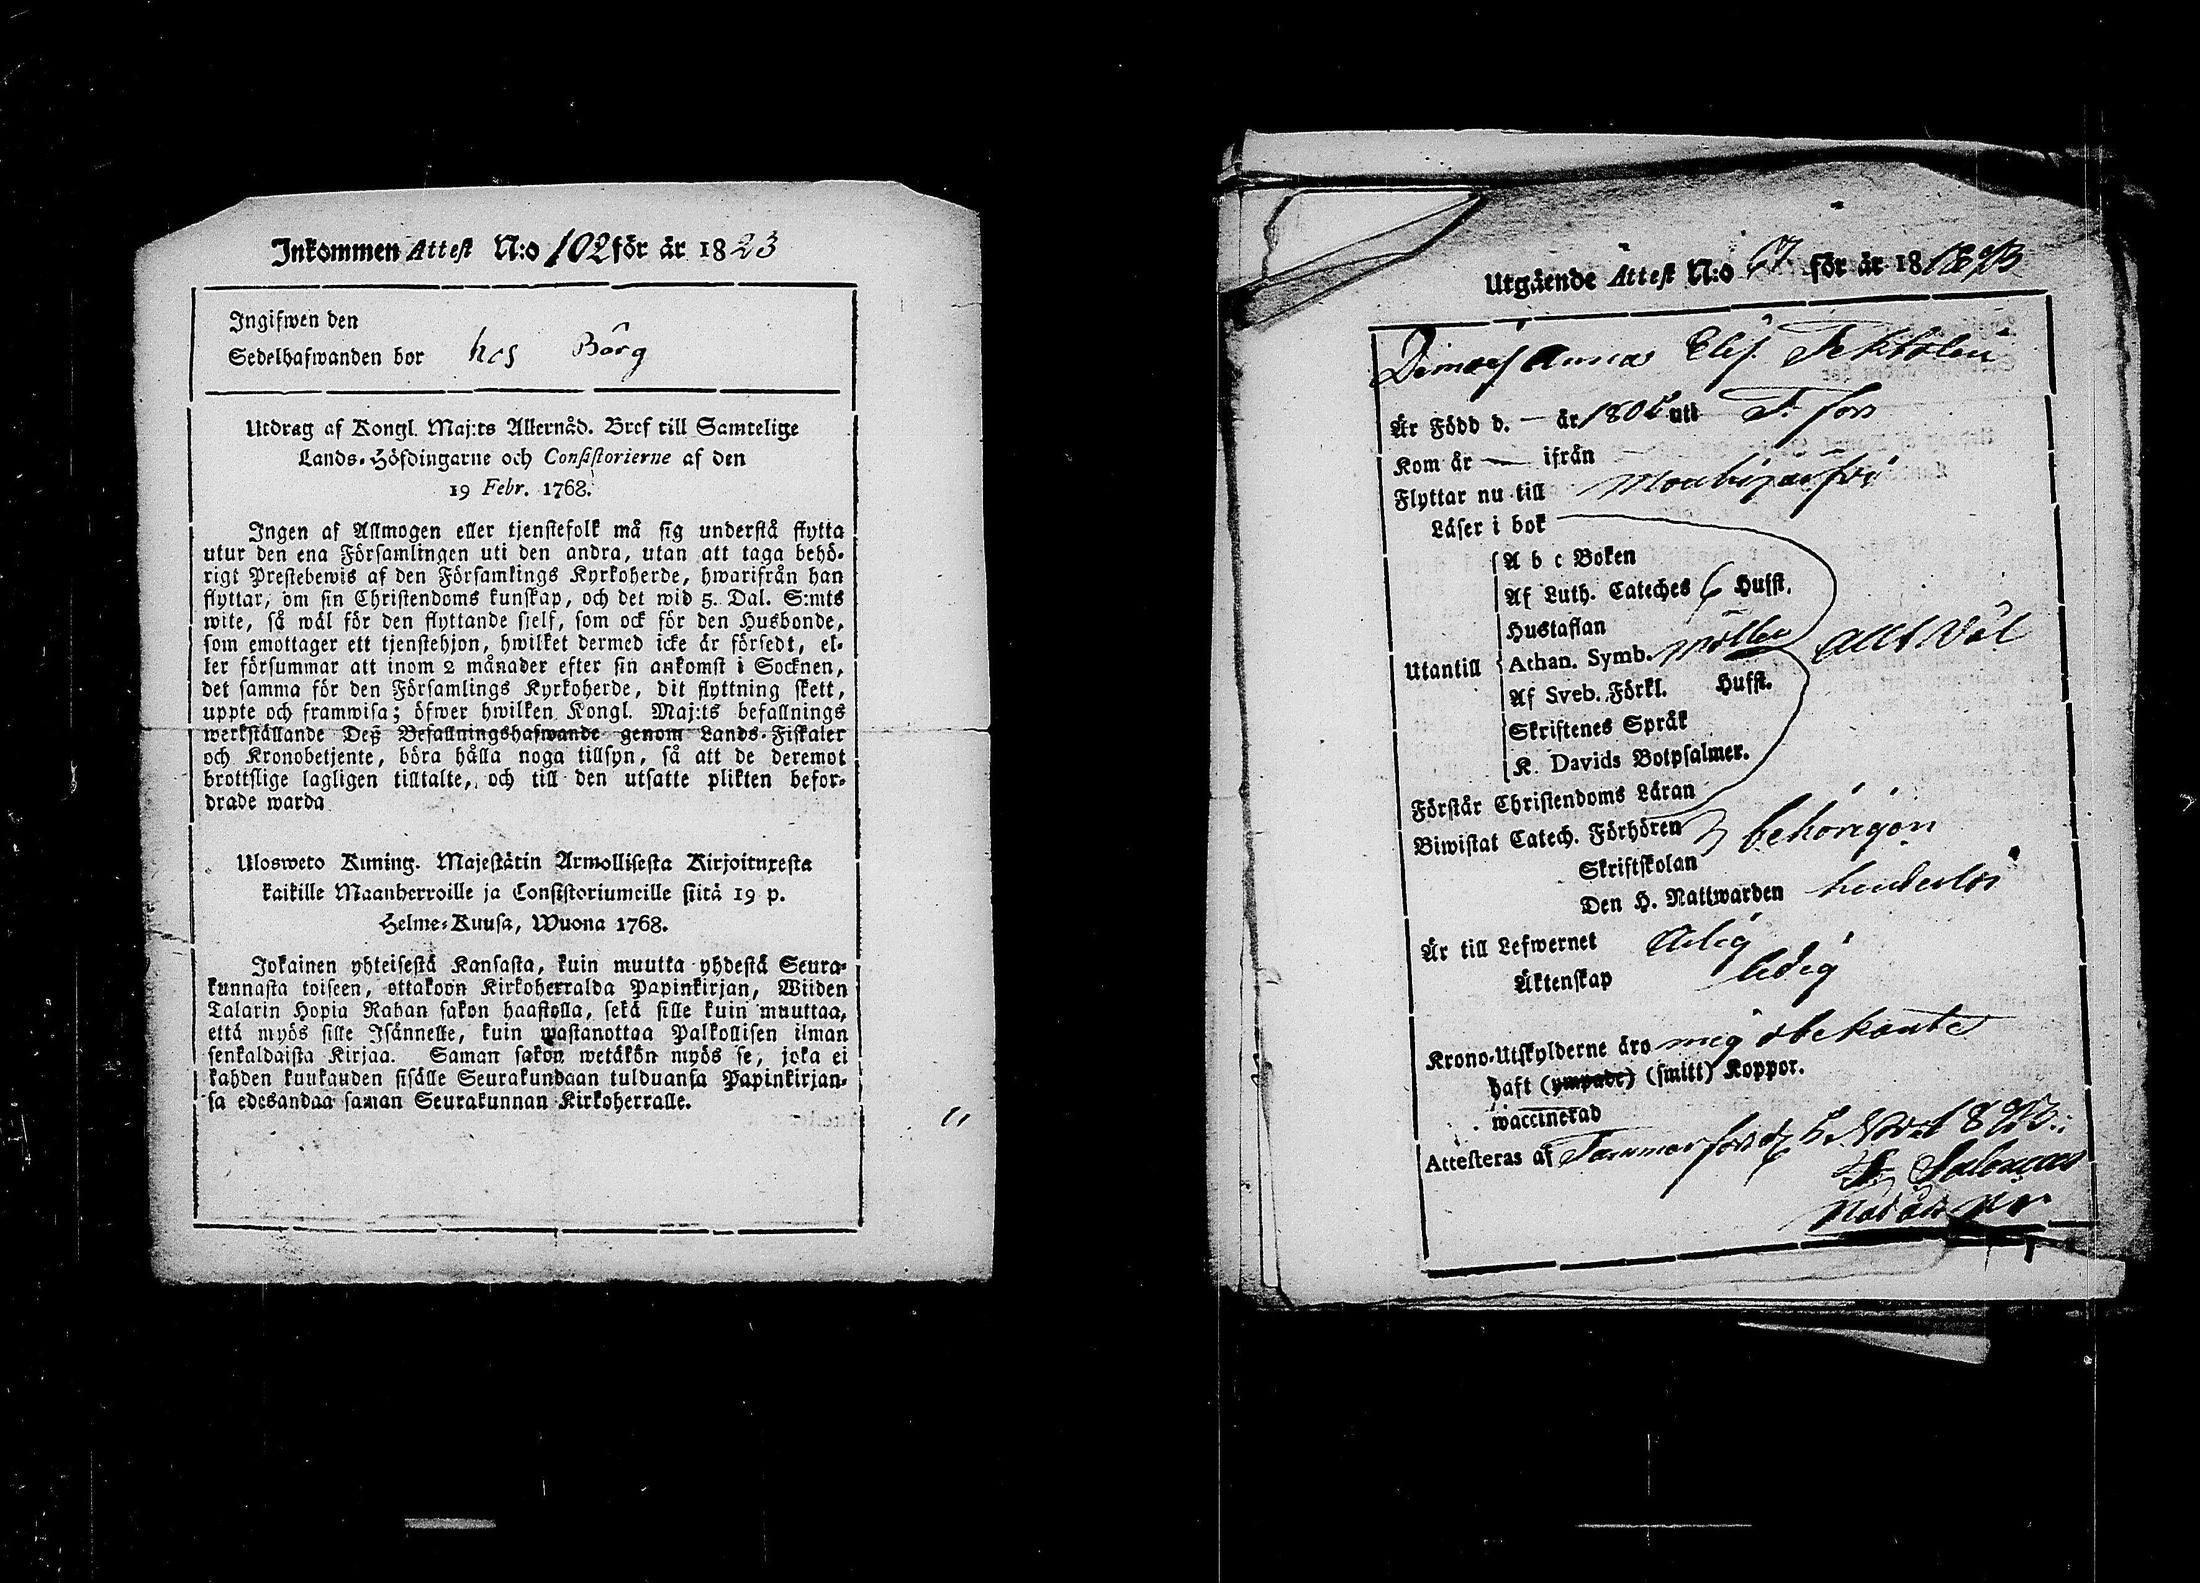 Inkommen Attest N:o 102 för år 1823
Ingifwen den
Sedelhafwanden bor hos Borg
Utdrag af Kongl. Maj:ts Allernåd. Bref till Samtelige
Lands-Höfdingarne och Consistorierne af den
19 Febr. 1768.
Ingen af Allmogen eller tjenstefolk må sig understå flytta
utur den ena Församlingen uti den andra, utan att taga behö-
rigt Prestebewis af den Församlings Kyrkoherde, hwarifrån han
flyttar, om sin Christendoms kunskap, och det wid 5. Dal. S:mts
wite, så wäl för den flyttande sjelf, som ock för den Husbonde,
som emottager ett tjenstehjon, hwilket dermed icke är försedt, el-
ler försummar att inom 2 månader efter sin ankomst i Socknen,
det samma för den Församlings Kyrkoherde, dit flyttning skett,
uppte och framwisa; öfwer hwilken Kongl. Maj:ts befallnings
werkställande Deß Befallningshafwande genom Lands-Fiskaler
och Kronobetjente, böra hålla noga tillsyn, så att de deremot
brottslige lagligen tilltalte, och till den utsatte plikten befor-
drade warda
Ulosweto Kuning. Majestätin Armollisesta Kirjoituxesta
kaikille Maanherroille ja Consistoriumeille siitä 19 p.
Helme-Kuusa, Wuona 1768.
Jokainen yhteisestä Kansasta, kuin muutta yhdestä Seura-
kunnasta toiseen, ottakoon Kirkoherralda Papinkirjan, Wiiden
Talarin Hopia Rahan sakon haastolla, sekä sille kuin muuttaa,
että myös sille Isännelle, kuin wastanottaa Palkollisen ilman
senkaldaista Kirjaa. Saman sakon wetäkön myös se, joka ei
kahden kuukauden sisälle Seurakundaan tulduansa Papinkirjan-
sa edesandaa saman Seurakunnan Kirkoherralle.
Utgående Attest N:o 67 för år 18 1823
Anna Elis.
Är Född d. — år 180 uti T. fors
Kom år — ifrån —
Flyttar nu till
Läser i bok
A b c Boken
Af Luth. Cateches 6 Hufst.
Hustaflan
Utantill Athan. Symb. Allt Väl
Af Sveb. Förkl. Hufst.
Skriftenes Språk
K. Davids Botpsalmer.
Förstår Christendoms Läran
Biwistat Catech. Förhören behörigen
Skriftskolan
Den H. Nattwarden
Är till Lefwernet
Äktenskap ledig
Krono-Utskylderne äro mig obekante
Haft (ympade) (smitt) Koppor.
waccinerad
Attesteras af Tammerfors d. 6 Nov. 1823.